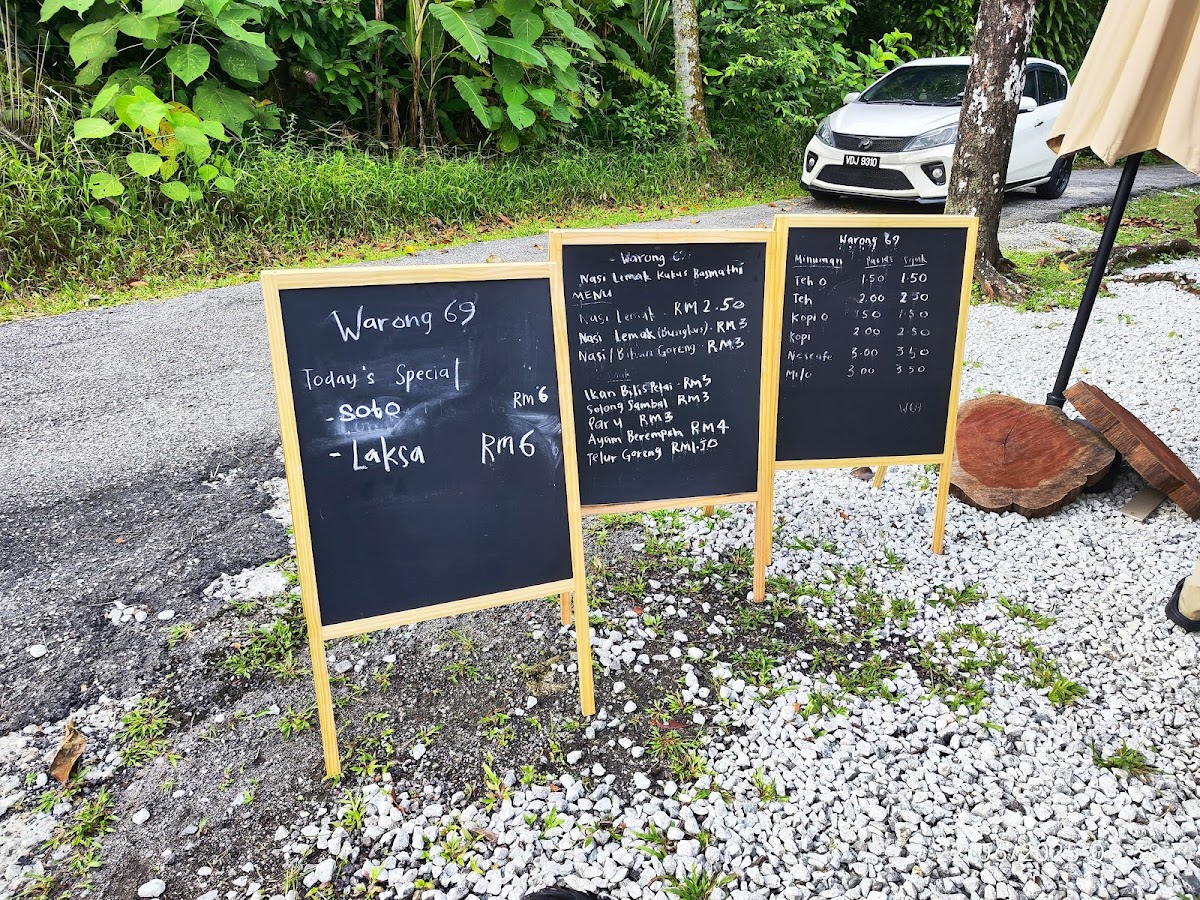 Warong 69
Today's Special
- Soto RM 6
- Laksa RM6
- Warong 6
Nasi Lemak Kukus Basmathi
MENU
Nasi Lemak - RM 2.50
Nasi Lemak (Bungkus) - RM 3
Nasi / Bihun Goreng RM 3
Ikan Bilis Petai - RM 3
Sotong Sambal RM 3
Paru RM 3
Ayam Berempah RM 4
Telur Goreng RM1.50
Warong 69
Minuman Panas Sejuk
Teh O 1.50 1.50
Teh 2.00 2.50
Kopi O 1.50 1.50
Kopi 2.00 2.50
Nescafe 3.00 3.50
Milo 3.00 3.50
W69
VDJ 9310